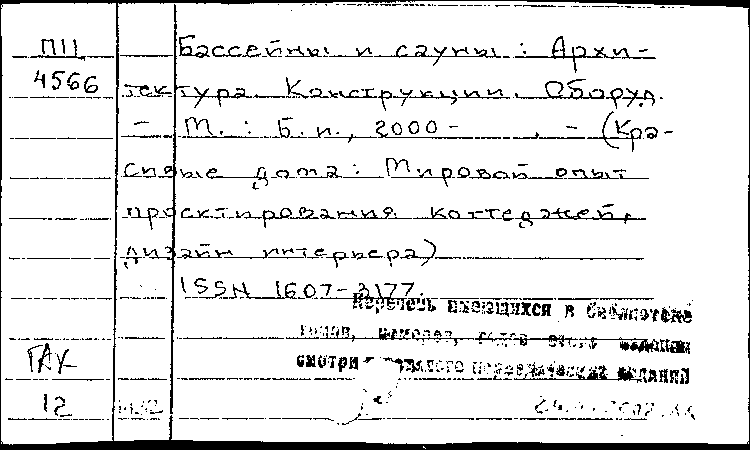 ПЦ Бассейны и сауны : Архи-
4566 тектура. Конструкции. Оборуд.
- М. : Б.и., 2000 - . - (Кра-
сивые дома : Мировой опыт
проектирования коттеджей,
дизайн интерьера)
ISSN 1607-3177.
Перечень имеющихся в библиотеке
томов, номеров, годов этого издания
смотри каталоге периодических изданий
ГАХ
12